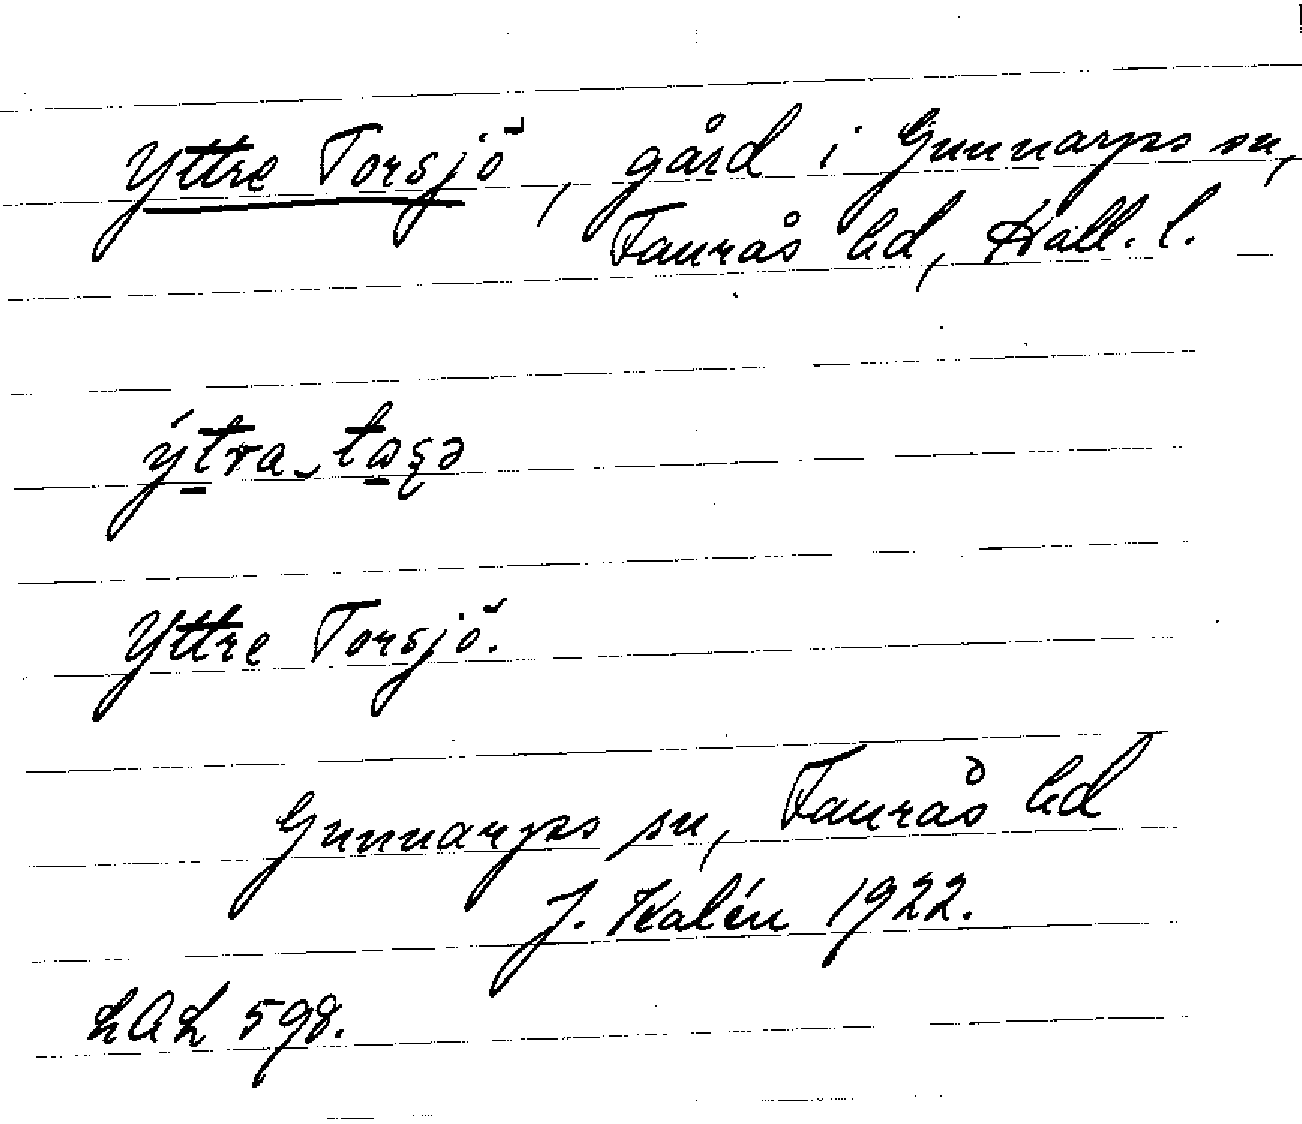 Yttre Torsjö, gård i Gunnarps sn,
Faurås hd, Hall. l.
Yttre Torsjö.
Gunnarps sn, Faurås hd
J. Kalén 1922.
LAL 598.